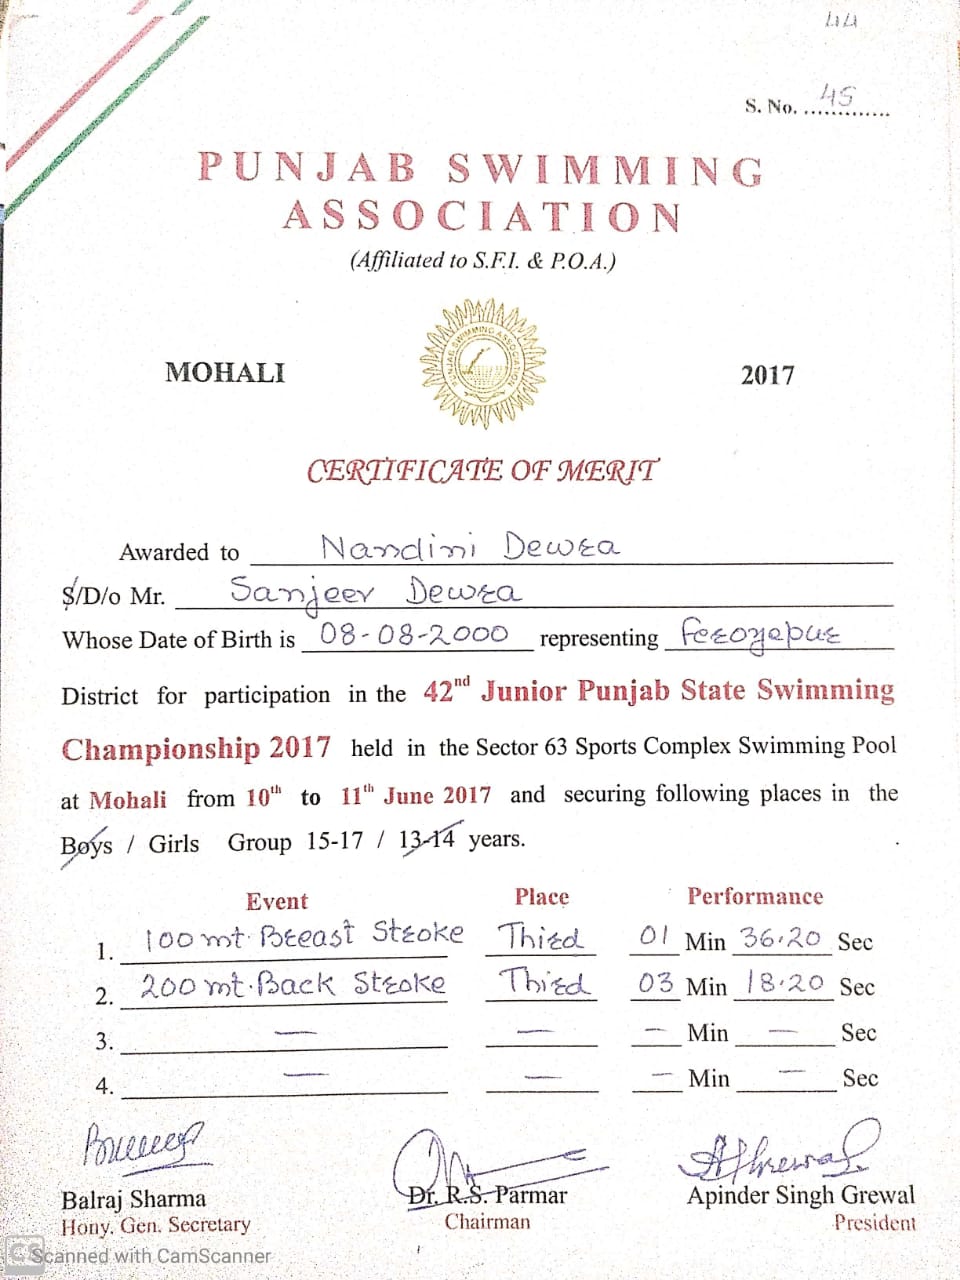 44
S. No. 45
PUNJAB SWIMMING
ASSOCIATION
(Affiliated to S.F.I. & P.O.A.)
PUNJAB SWIMMING ASSOCIATION
MOHALI 2017
CERTIFICATE OF MERIT
Awarded to Nandini Dewra
S/D/o Mr. Sanjeev Dewra
Whose Date of Birth is 08-08-2000 representing Ferozepur
District for participation in the 42nd Junior Punjab State Swimming
Championship 2017 held in the Sector 63 Sports Complex Swimming Pool
at Mohali from 10th to 11th June 2017 and securing following places in the
Boys / Girls Group 15-17 / 13-14 years.
Event Place Performance
1. 100 mt. Breast Stroke Third 01 Min 36.20 Sec
2. 200 mt. Back Stroke Third 03 Min 18.20 Sec
3. — — — Min — Sec
4. — — — Min — Sec
Balraj Sharma Dr. R.S. Parmar Apinder Singh Grewal
Hony. Gen. Secretary Chairman President
CS Scanned with CamScanner